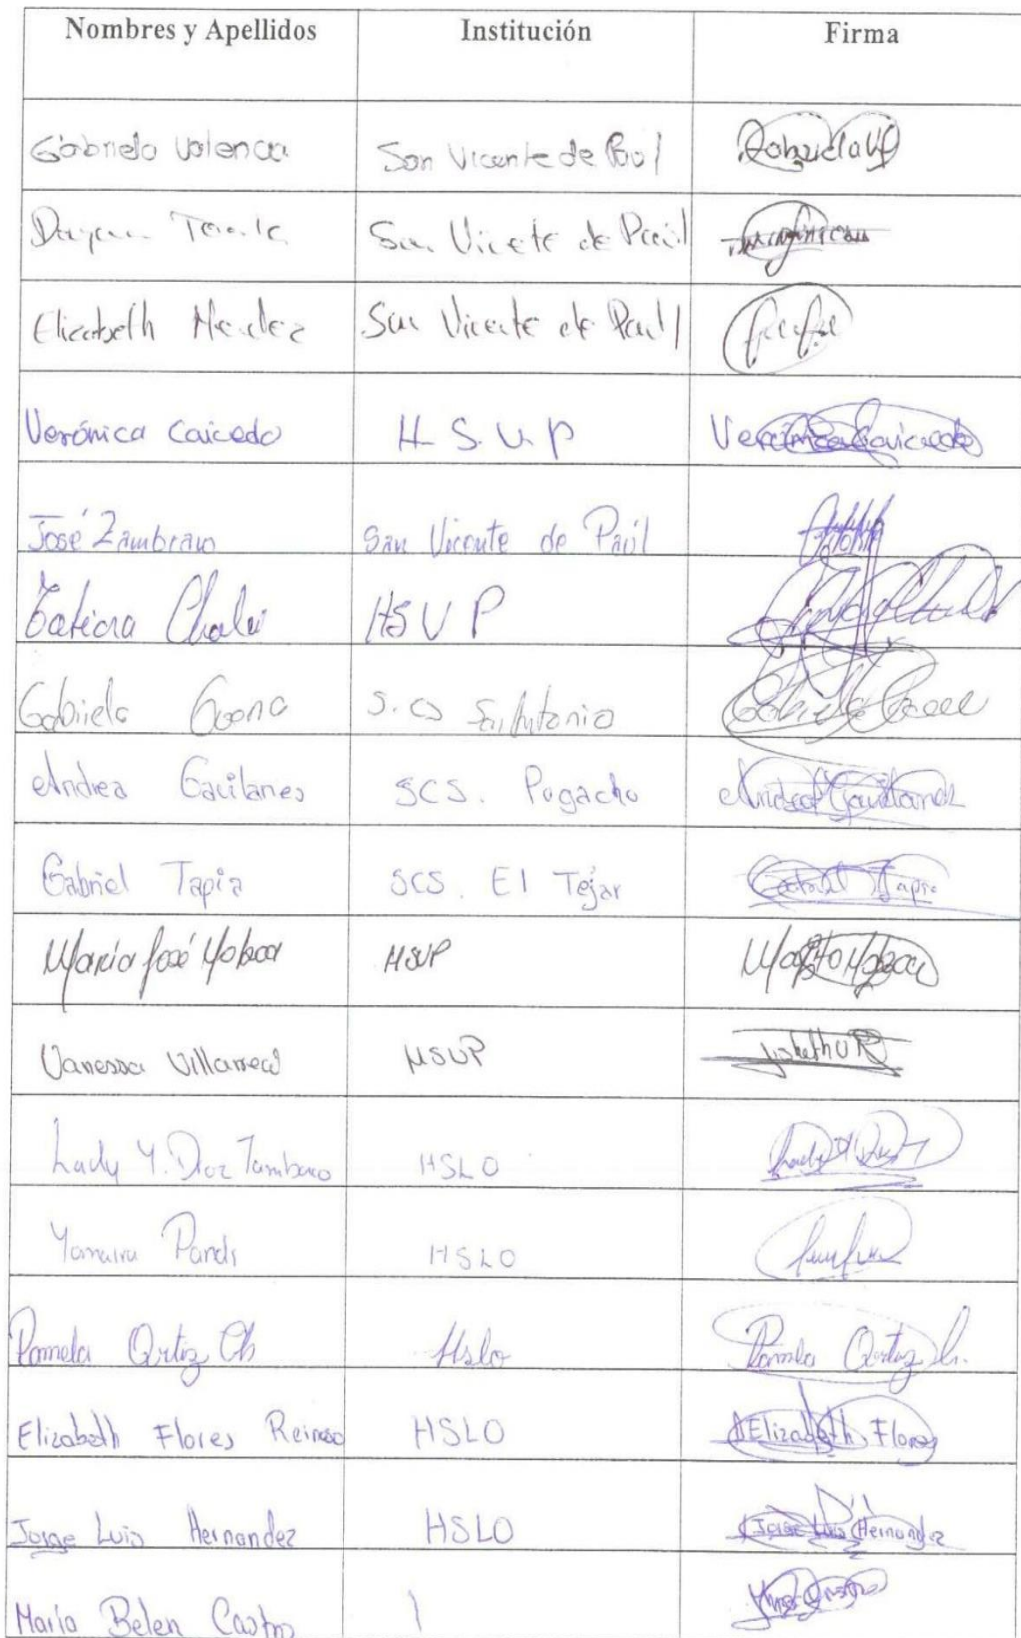 Nombres y Apellidos Institución Firma
Gabriela Valencia San Vicente de Paul Gabriela V
San Vicete de Paúl
Elizabeth Mendez San Vicente de Paul
Verónica Caicedo H S. V. P Verónica Caicedo
José Zambrano San Vicente de Paúl
Tatiana HSVP
Gabriela S. CS San Antonio Gabriela
Andrea Gavilanes SCS. Pugacho Andrea Gavilanes
Gabriel Tapia SCS. El Tejar Gabriel Tapia
María José HSVP
Vanessa Villarreal HSVP
Lady Y. Diaz Tambaco HSLO
HSLO
Pamela Ortiz Ch Hslo Pamela Ortiz Ch.
Elizabeth Flores Reinoso HSLO Elizabeth Flores
Jorge Luis Hernandez HSLO Jorge Luis Hernandez
María Belen Castro